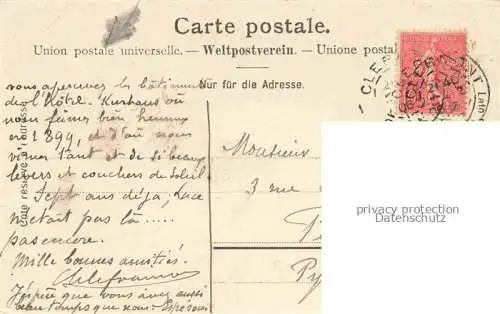 Carte postale.
Union postale universelle. — Weltpostverein. — Unione posta
Nur für die Adresse.
Côté réservé à l'adresse.
vous apercevez les bâtiments
de l'Hôtel Kurhaus où
nous fûmes bien heureux
en 1899, et d'où nous
vîmes tant et de si beaux
levers et couchers de soleil
Sept ans déjà; Luce
n'était pas là .....
pas encore.
Mille bonnes amitiés.
J'espère que vous avez aussi
beau temps que nous. Espérons
Monsieur
3 rue
Py
privacy protection
Datenschutz